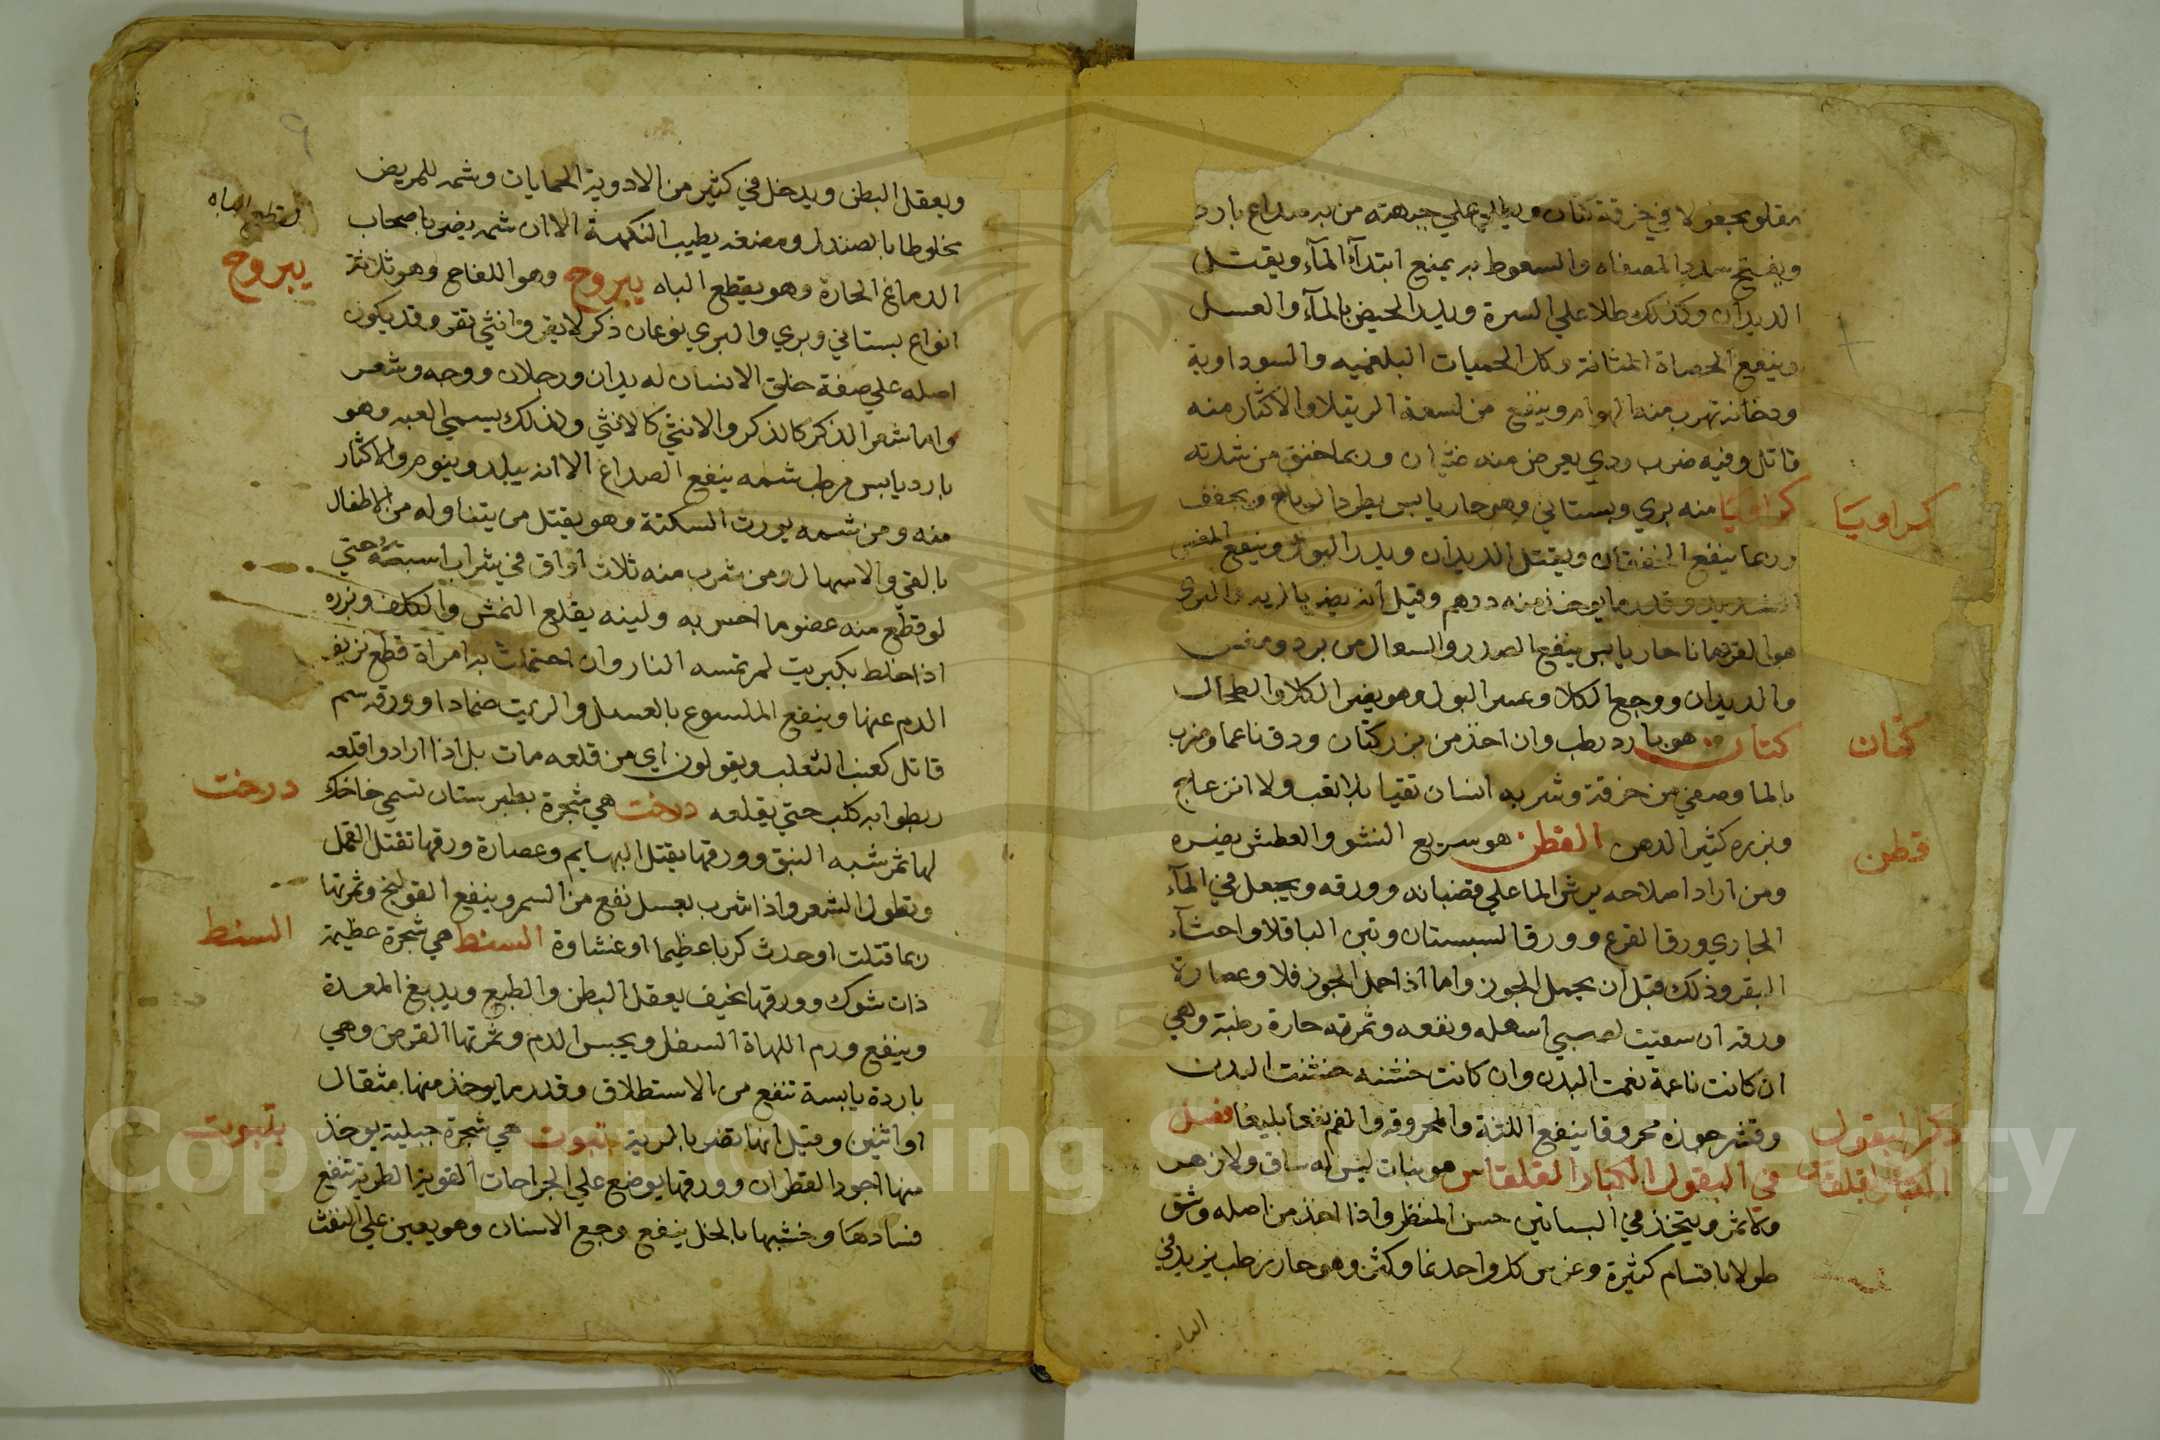 مقلو مجعولا في خرقة كتان ويطلي علي جبهته من به صداع بارد
ويفتح سدد المصفاه والسعوط به يمنع ابتدآء المآء ويقتل
الديدان وكذلك طلا علي السرة ويدر الحيض بالمآء والعسل
وينفع الحصاة المثانة وكل الحميات البلغميه والسوداوية
ودخانه تهرب منه الهوام وينفع من لسعة الرتيلا والاكثار منه
قاتل وفيه ضرب ردي يعرض منه غثيان وربما خنق من شدته
كراويا منه بري وبستاني وهو حار يابس يطرد الرياح ويجفف
وربما ينفع الخفقان ويقتل الديدان ويدر البول وينفع المغس
الشديد وقدر ما يوخذ منه درهم وقيل انه يضر بالريه والبري
هو القردمانا حار يابس ينفع الصدر والسعال من برد ومغس
والديدان ووجع الكلا وعسر البول وهو يضر الكلا والطحال
كتان هو بارد رطب وان اخذ من بزر كتان ودق ناعما وضرب
بالما وصفي من خرقة وشربه انسان تقيا بلا تعب ولا انزعاج
وبزره كثير الدهن القطن هو سريع النشو والعطش يضره
ومن اراد اصلاحه يرش الما علي قضبانه وورقه ويجعل في المآء
الجاري ورق القرع وورق السبستان وتبن الباقلا واحثآء
البقر وذلك قبل ان يحمل الجوز واما اذا حمل الجوز فلا وعصارة
ورقه ان سقيت لصبي اسهله ونفعه وثمرته حارة رطبة وهي
ان كانت ناعمة نعمت البدن وان كانت خشنه خشنت البدن
وقشر جوزه محروقا ينفع اللثة والمحروقه والفم نفعا بليغا فصل
في البقول الكبار القلقاس هو نبات ليس له ساق ولا زهر
ولا ثمر ويتخذ في البساتين حسن المنظر واذا اخذ من اصله وشق
طولا باقسام كثيرة وغرس كل واحد نما وكثر وهو حار رطب يزيد في
كراويا
كتان
قطن
ذكر البقول
الكبار قلقاس
الباه
٩
ويعقل البطن ويدخل في كثير من الادوية الحمايات وشمه للمريض
مخلوطا بالصندل ومضغه يطيب النكهة الا ان شمه يضر باصحاب
الدماغ الحارة وهو يقطع الباه يبروح وهو اللفاح وهو ثلاثة
انواع بستاني وبري والبري نوعان ذكر لا يقر وانثي تقر وقد يكون
اصله علي صفة خلق الانسان له يدان ورجلان ووجه وشعر
واما شعر الذكر كالذكر والانثي كالانثي ولذلك يسمي العبه وهو
بارد يابس مرطب شمه ينفع الصداع الا انه يبلد وينوم والاكثار
منه ومن شمه يورث السكتة وهو يقتل من يتناوله من الاطفال
بالقي والاسهال ومن شرب منه ثلاث اواق في شراب اسبته حتي
لو قطع منه عضو ما احس به ولبنه يقلع النمش والكلف وبزره
اذا خلط بكبريت لم تمسه النار وان احتملت به امراة قطع نزيف
الدم عنها وينفع الملسوع بالعسل والزيت ضمادا وورقه سم
قاتل كعنب الثعلب ويقولون اي من قلعه مات بل اذا ارادوا قلعه
ربطوا به كلب حتي يقلعه درخت هي شجرة بطبرستان تسمي خاخك
لها ثمر شبه النبق وورقها يقتل البهايم وعصارة ورقها تقتل القمل
وتطول الشعر واذا شرب بعسل نفع من السم وينفع القولنج وثمرتها
ربما قتلت او حدث كربا عظيما او غشاوة السنط هي شجرة عظيمة
ذات شوك وورقها يخيف يعقل البطن والطبع ويدبغ المعدة
وينفع ورم اللهاة السفل ويحبس الدم وثمرتها القرض وهي
باردة يابسة تنفع من الاستطلاق وقدر ما يوخذ منها مثقال
او اثنين وقيل انها تضر بالرية تبوت هي شجرة جبلية يوخذ
منها اجود القطران وورقها يوضع علي الجراحات القوية الطرية تنفع
فسادها وخشبها بالخل ينفع وجع الاسنان وهو يعين علي النفث
يقطع الباه
يبروح
درخت
السنط
تبوت
Copyright © King Saud University
195